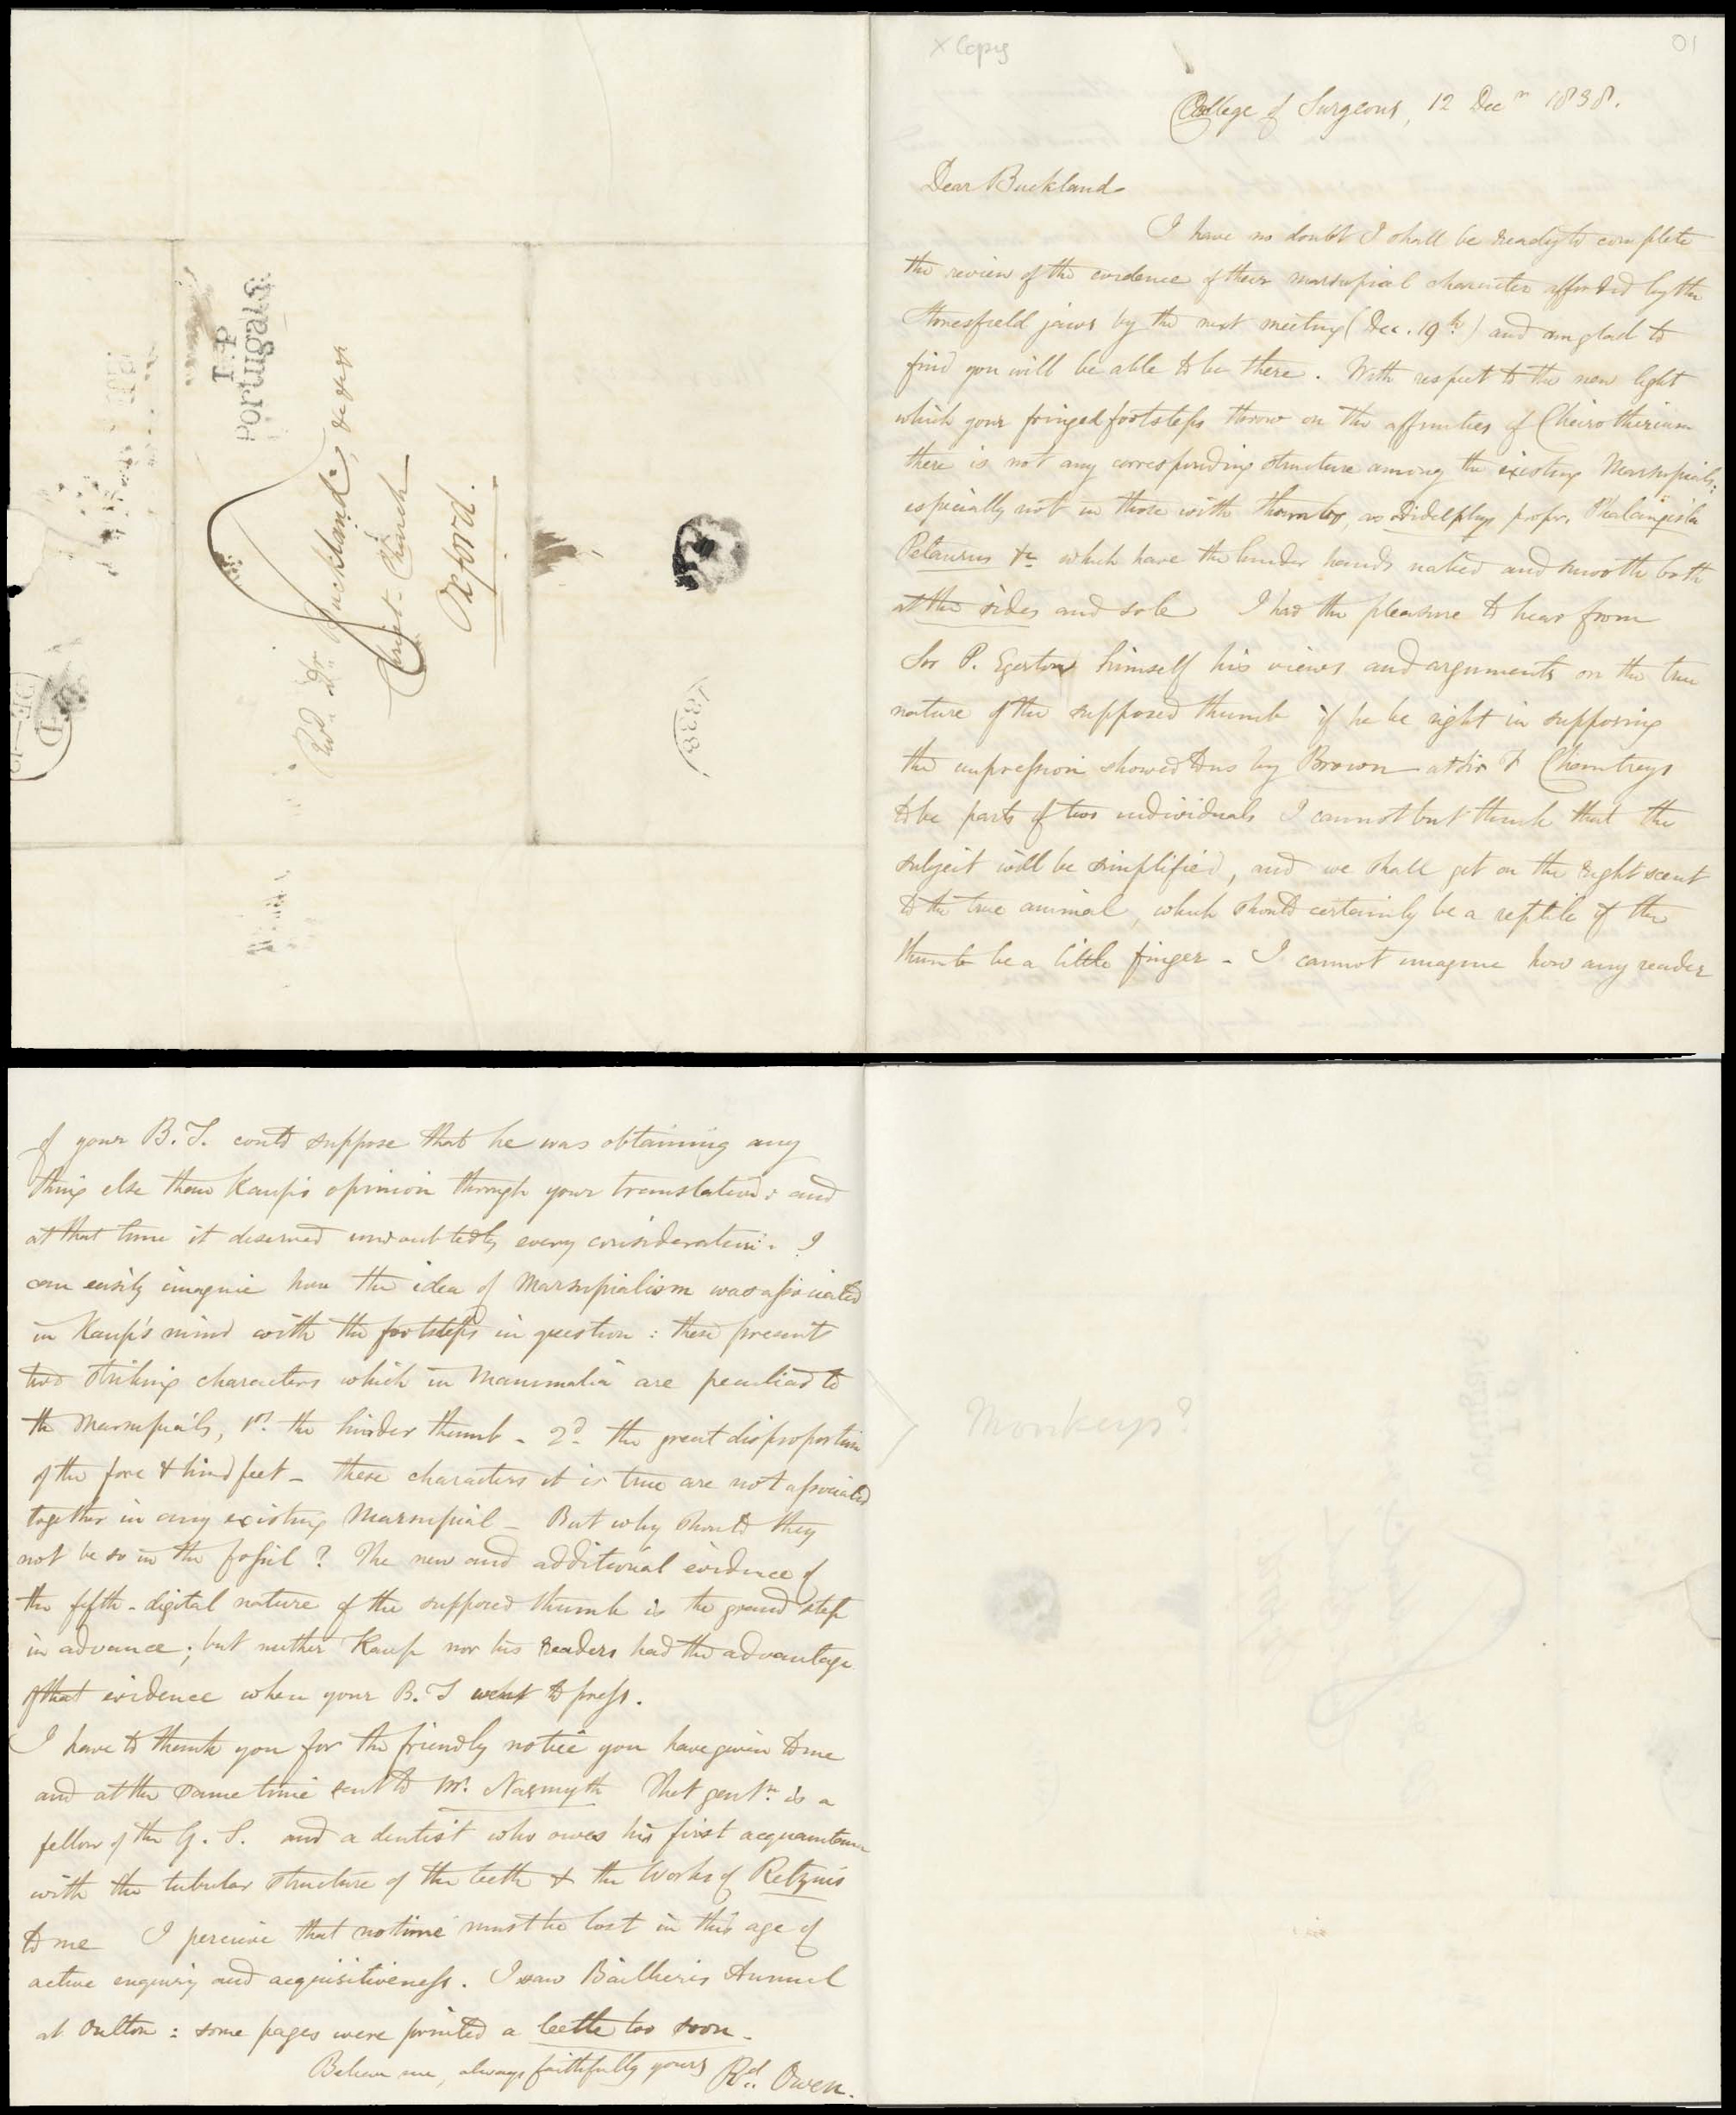 T.P
Portugal St
Revd. Dr. Buckland,
Christ-Church
Oxford.
1838
x Copy
01
College of Surgeons, 12 Decr 1838.
Dear Buckland
I have no doubt I shall be ready to complete
the review of the evidence of their marsupial character afforded by the
Stonesfield jaws by the next meeting (Dec. 19th) and am glad to
find you will be able to be there. With respect to the new light
which your fringed footsteps throw on the affinities of Cheirotherium
there is not any corresponding structure among the existing Marsupials:
especially not in those with thumbs, as Didelphys propr. Phalangista
Petaurus &c which have the hinder hands naked and smooth both
at the sides and sole I had the pleasure to hear from
Sir P. Egerton himself his views and arguments on the true
nature of the supposed thumb if he be right in supposing
the impression showed to us by Brown at Sir F Chantreys
to be parts of two individuals I cannot but think that the
subject will be simplified, and we shall get on the right scent
to the true animal, which should certainly be a reptile if the
thumb be a little finger - I cannot imagine how any reader
of your B.T. could suppose that he was obtaining any
thing else than Kaup's opinion through your translation: and
at that time it deserved undoubtedly every consideration. I
can easily imagine how the idea of Marsupialism was associated
in Kaup's mind with the footsteps in question: these present
two striking characters which in Mammalia are peculiar to
the Marsupials, 1st. the hinder thumb - 2d. the great disproportion
of the fore & hind feet - these characters it is true are not associated
together in any existing Marsupial - But why should they
not be so in the fossil? The new and additional evidence of
the fifth-digital nature of the supposed thumb is the grand step
in advance; but neither Kaup nor his readers had the advantage
of that evidence when your B.T went to press.
I have to thank you for the friendly notice you have given to me
and at the same time sent to Mr. Nasmyth That gentn. is a
fellow of the G.S. and a dentist who owes his first acquaintance
with the tubular structure of the teeth & the Works of Retzius
to me I perceive that no time must be lost in this age of
active enquiry and acquisitiveness. I saw Bailliere's Annual
at Oulton: some pages were printed a leetle too soon.
Believe me, always faithfully yours Rd. Owen.
Monkeys?